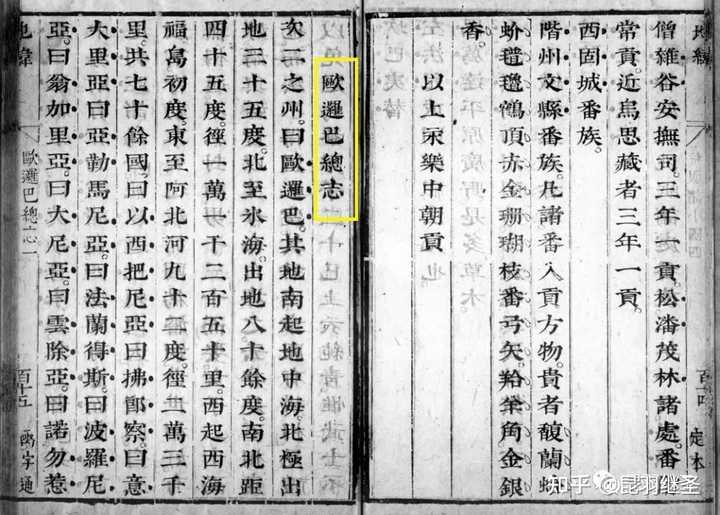 地緯 百十四 定本
僧雜谷安撫司。三年一貢。松潘茂林諸處。番
常貢。近烏思藏者三年一貢。
西固城番族。
階州文縣番族。凡諸番入貢方物。貴者馥蘭
氆氌。鶴頂。赤金。珊瑚枝。番弓矢。羚羊角。金銀
香。
以上永樂中朝貢
歐邏巴總志
次二之州曰歐邏巴。其地南起地中海。北極出
地三十五度。北至氷海。出地八十餘度。南北距
四十五度。徑一萬一千二百五十里。西起西海
福島初度。東至阿北河九十二度。徑二萬三千
里。共七十餘國。曰以西把尼亞。曰拂郎察。曰意
大里亞。曰亞勒馬尼亞。曰法蘭得斯。曰波羅尼
亞。曰翁加里亞。曰大尼亞。曰雲除亞。曰諾勿惹
地緯 歐邏巴總志一 百十五 函宇通
知乎 昆羽继圣